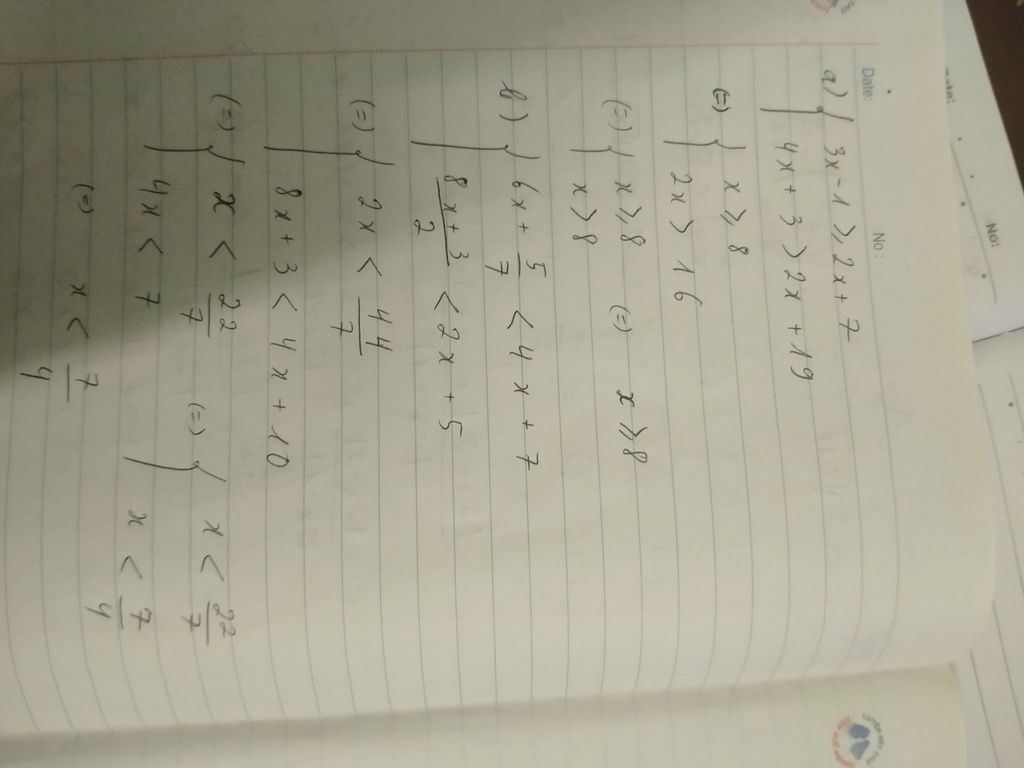 Date:
No:
a) { 3x - 1 ≥ 2x + 7
4x + 3 > 2x + 19
(=) { x ≥ 8
2x > 16
(=) { x ≥ 8 (=) x ≥ 8
x > 8
b) { 6x + 5/7 < 4x + 7
(8x + 3)/2 < 2x + 5
(=) { 2x < 44/7
8x + 3 < 4x + 10
(=) { x < 22/7 (=) { x < 22/7
4x < 7 x < 7/4
(=) x < 7/4
No: